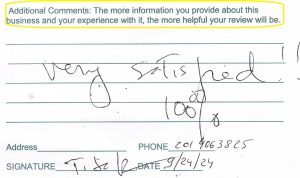 Additional Comments: The more information you provide about this
business and your experience with it, the more helpful your review will be.
very satisfied!!
100%
Address
PHONE 201 9063825
SIGNATURE DATE 9/24/24